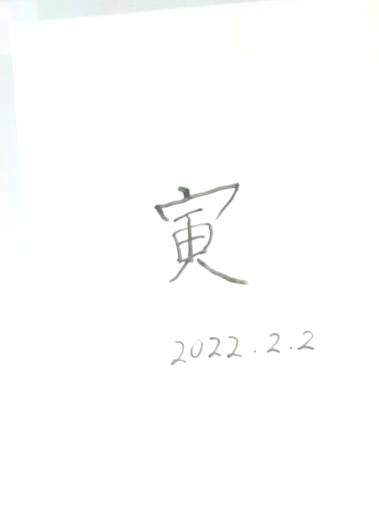 寅
2022.2.2